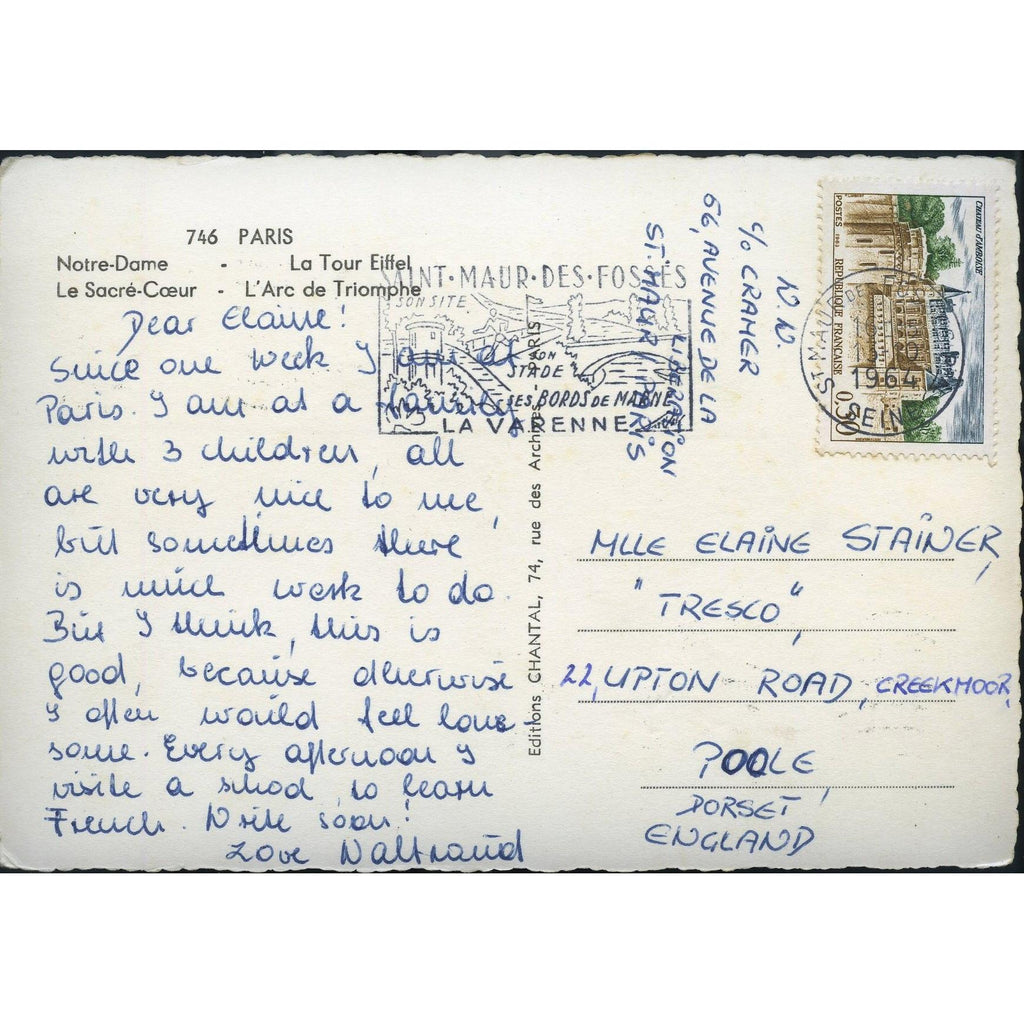 746 PARIS
Notre-Dame - La Tour Eiffel
Le Sacré-Cœur - L'Arc de Triomphe
Dear Elaine!
Since one week I am at
Paris. I am at a family
with 3 children, all
are very nice to me,
but sometimes there
is much work to do.
But I think, this is
good, because otherwise
I often would feel lone
some. Every afternoon I
visite a school to learn
French. Write soon!
Love Waltraud
Editions CHANTAL, 74, rue des Archives - PARIS
SAINT·MAUR·DES·FOSSÉS
SON SITE
SON
STADE
SES BORDS DE MARNE
LA VARENNE
W. W.
c/o CRAMER
66, AVENUE DE LA
LIBERATION
ST. MAUR / PARIS
CHATEAU d'AMBOISE
POSTES 1963
REPUBLIQUE FRANÇAISE
0,30
ST MAUR DES
1964
SEINE
MLLE ELAINE STAINER,
"TRESCO",
22, UPTON ROAD, CREEKMOOR,
POOLE,
DORSET
ENGLAND